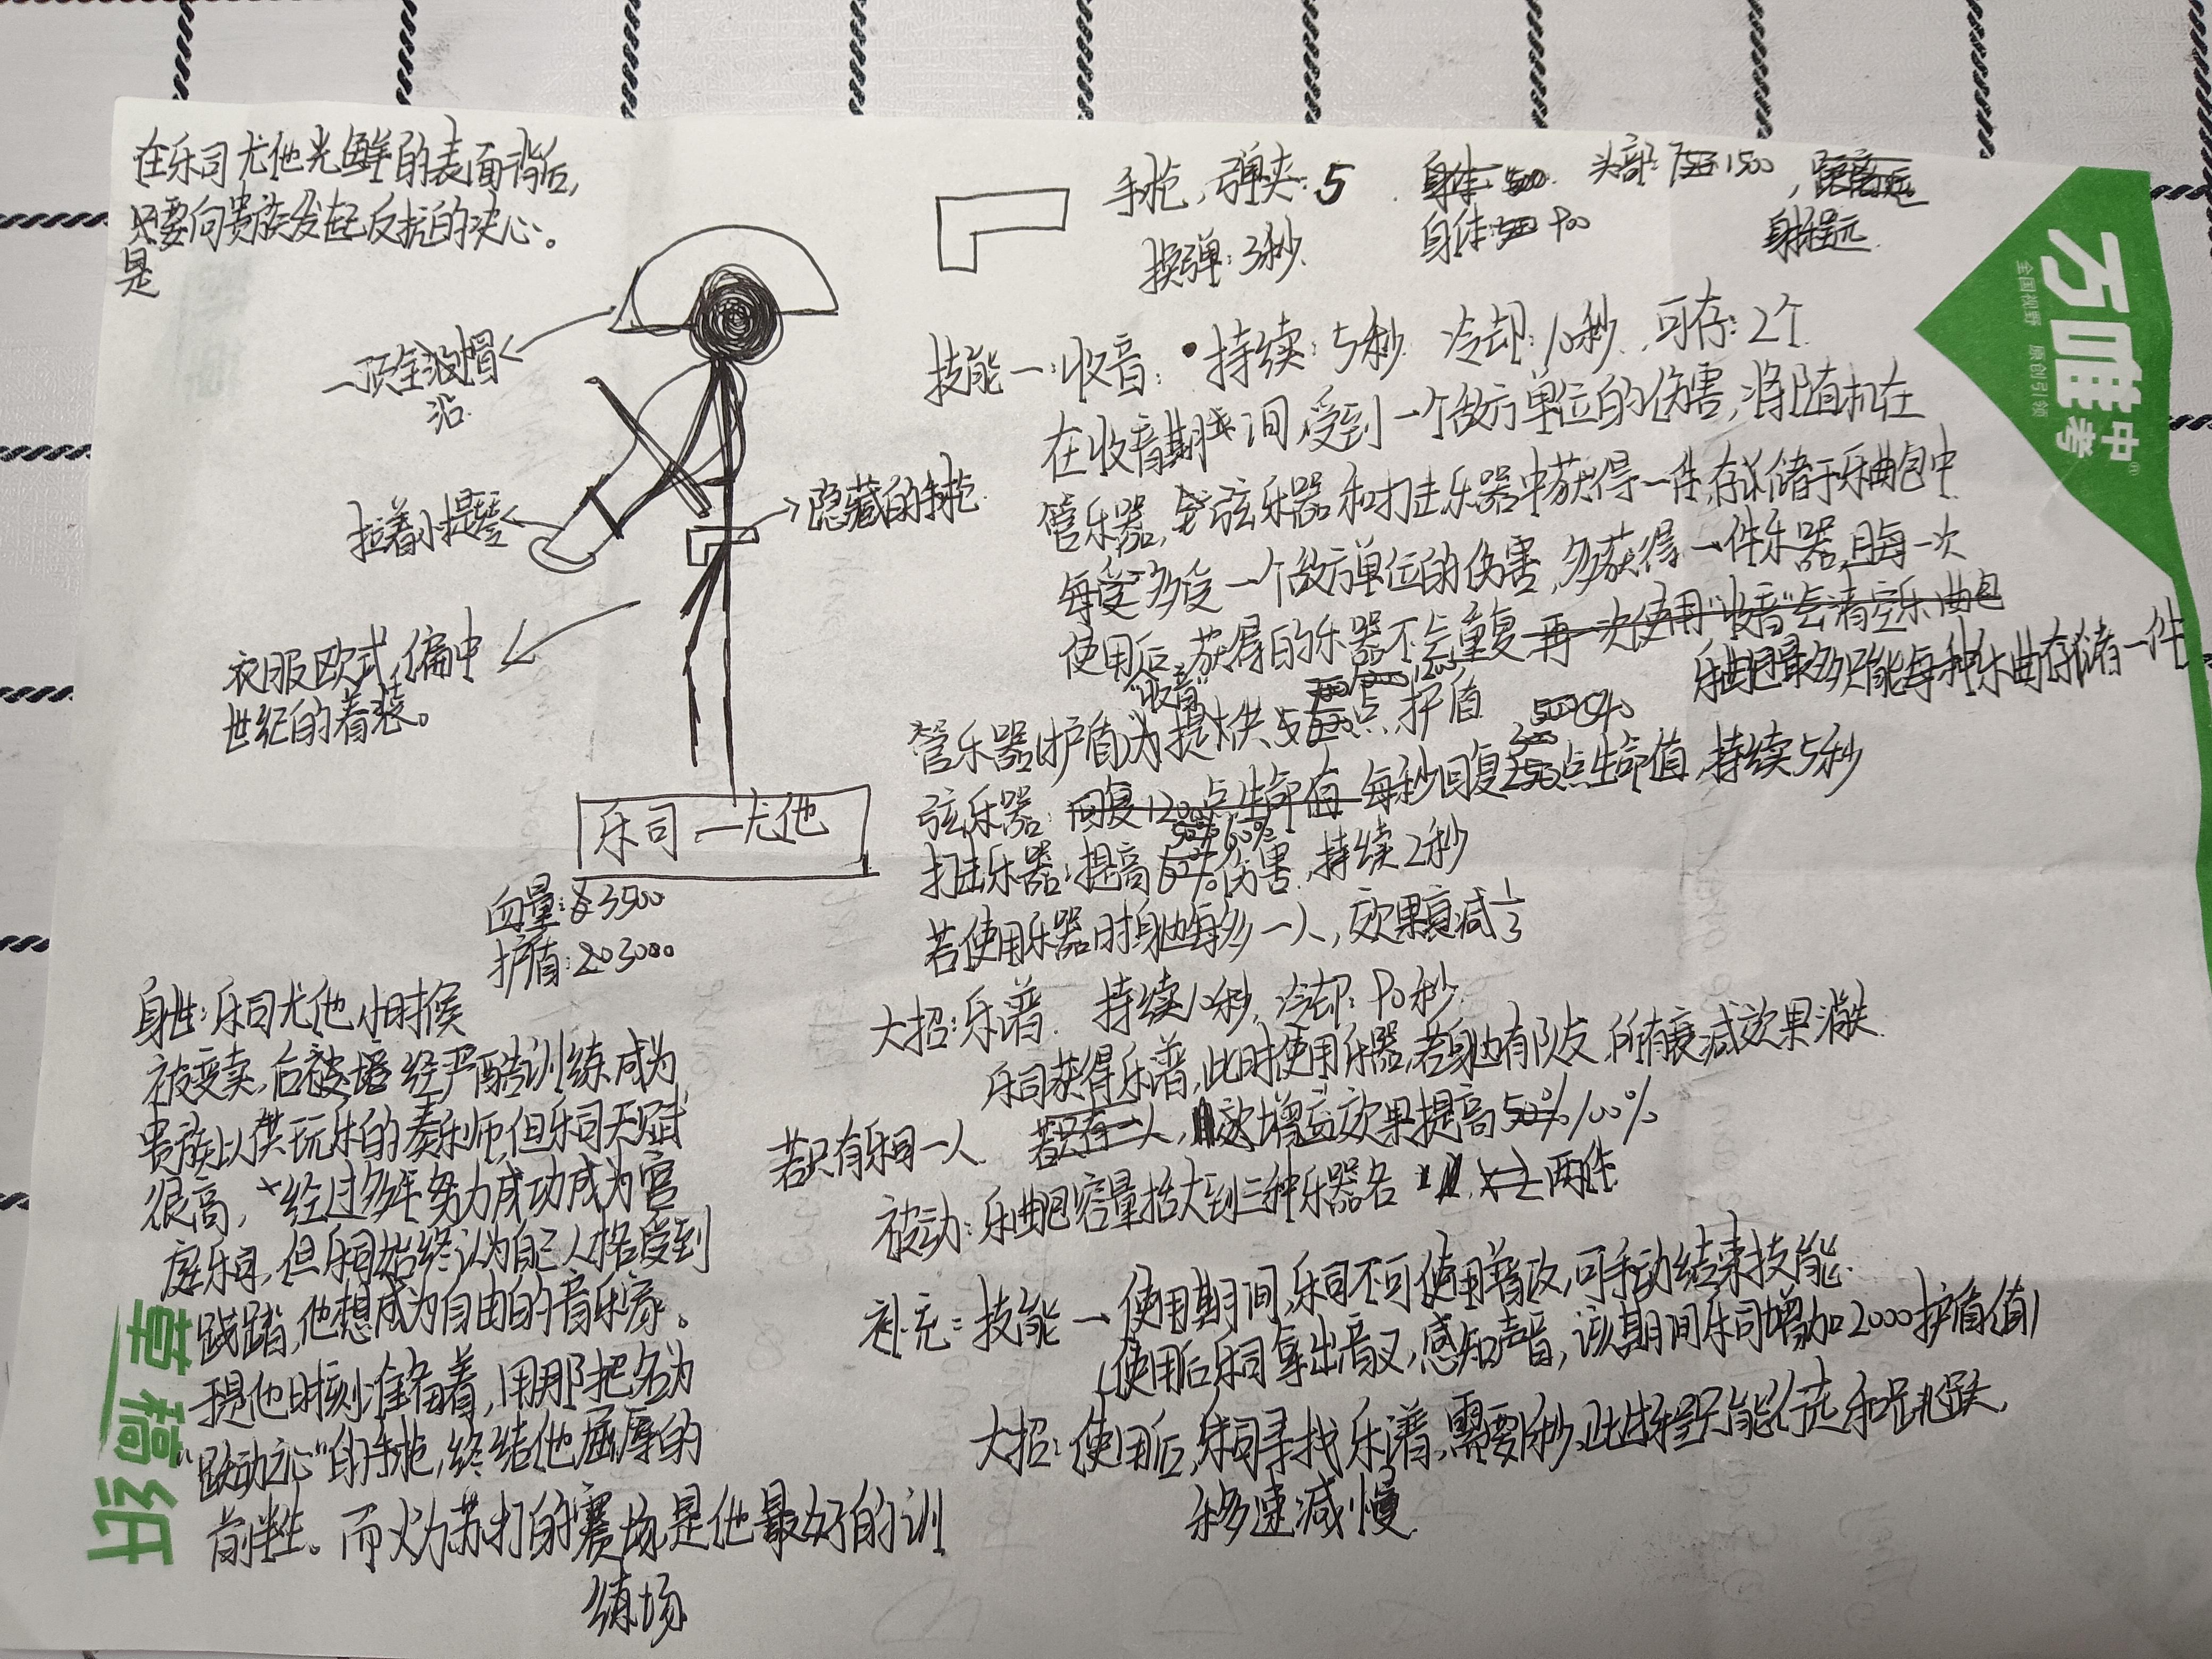 在乐司尤他光鲜的表面背后,
只要向贵族发起反抗的决心。
是
一顶全波帽
沿
拉着小提琴
隐藏的手枪
衣服欧式,偏中
世纪的着装。
乐司—尤他
血量: 3500
护盾: 3000
身世:乐司尤他小时候
被变卖,后被 经严酷训练成为
贵族以供玩乐的奏乐师,但乐司天赋
很高, 经过多年努力成功成为宫
庭乐司,但乐司始终认为自己人格受到
践踏,他想成为自由的音乐家。
于是他时刻准备着,用那把名为
“跃动之心”的手枪,终结他屈辱的
前半生。而火力苏打的赛场是他最好的训
练场
手枪,弹夹:5 身体: 500 头部: 1500 , 距离远
换弹:3秒 身体: 900 射程远
技能一:收音: 持续:5秒 冷却:10秒,可存:2个
在收音期间,受到一个敌方单位的伤害,将随机在
管乐器,弦乐器和打击乐器中获得一件,存储于乐曲包中
每 多受一个敌方单位的伤害,多获得一件乐器,且每一次
使用后,获得的乐器不会重复 再一次使用“收音”会清空乐曲包
“收音” 乐曲包最多只能每种乐曲存储一件
管乐器(护盾)为提供 点护盾
弦乐器: 回复1200点生命值 每秒回复 点生命值,持续5秒
打击乐器:提高 60% 伤害,持续2秒
若使用乐器时身边每多一人,效果衰减1/3
大招:乐谱 持续10秒,冷却:90秒
乐司获得乐谱,此时使用乐器,若身边有队友,所有衰减效果消失
若只有乐司一人 若只有一人, 增益效果提高50%100%
被动:乐曲包容量扩大到三种乐器各 两件
补充:技能一使用期间,乐司不可使用普攻,可手动结束技能
(使用后乐司拿出音叉,感知声音,该期间乐司增加2000护盾值)
大招:使用后,乐司寻找乐谱,需要1秒,此过程只能行走和跳跃,
移速减慢
万唯
中考
全国视野 原创引领
草稿纸